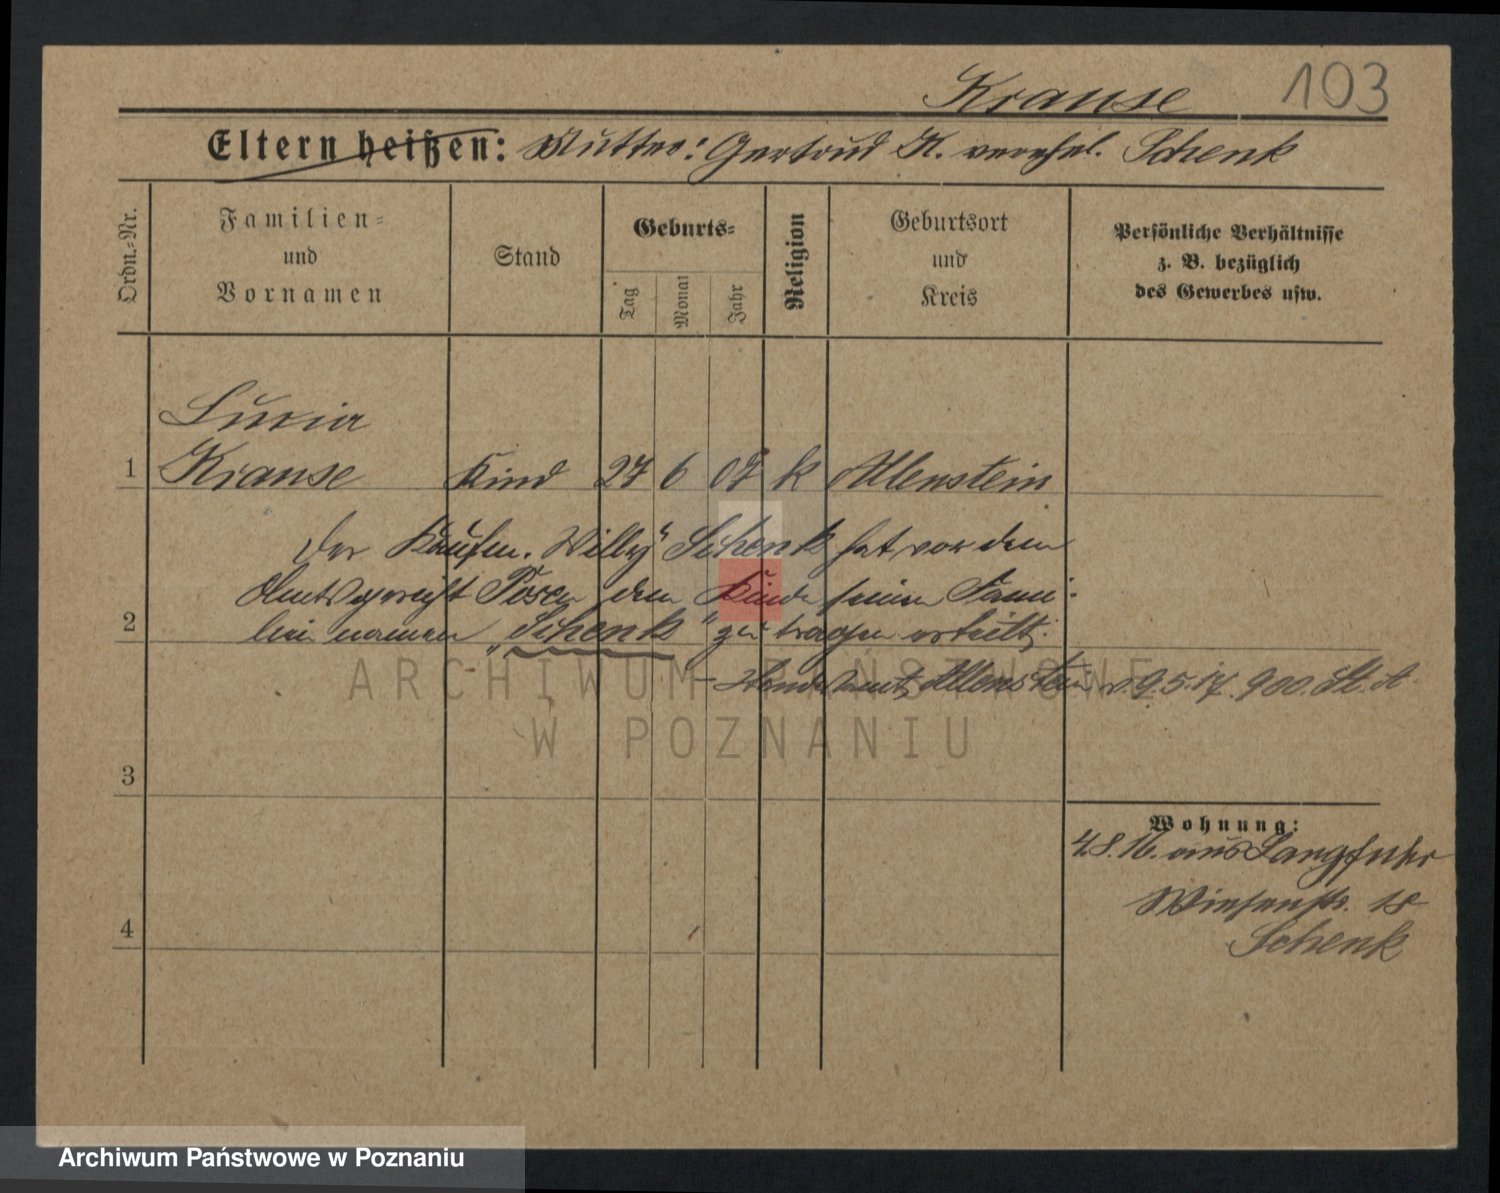 Krause 103
Eltern heißen: Mutter: Gertrud K. verehel. Schenk
Ordn.-Nr.
Familien-
und
Vornamen
Stand
Geburts-
Tag
Monat
Jahr
Religion
Geburtsort
und
Kreis
Persönliche Verhältnisse
z. B. bezüglich
des Gewerbes usw.
Lucia
1 Krause Kind 27 6 07 k Allenstein
Der Kaufm. Willy Schenk hat vor dem
Amtsgericht Posen dem Kinde seinen Fami-
2 lien namen „Schenk" zu tragen erteilt.
Allenstein v. 9.5.17. 900. St. A.
ARCHIWUM PAŃSTWOWE
W POZNANIU
3
Wohnung:
4.8.16. aus Langfuhr
Wiesenstr. 18
4 Schenk
Archiwum Państwowe w Poznaniu